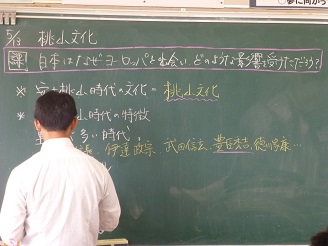 5/13 桃山文化
課 日本はなぜヨーロッパと出会い、どのような影響を受けたのだろう?
※ 安土桃山時代の文化=桃山文化
※ 山時代の特徴
多い時代。
伊達政宗、武田信玄、豊臣秀吉、徳川家康…